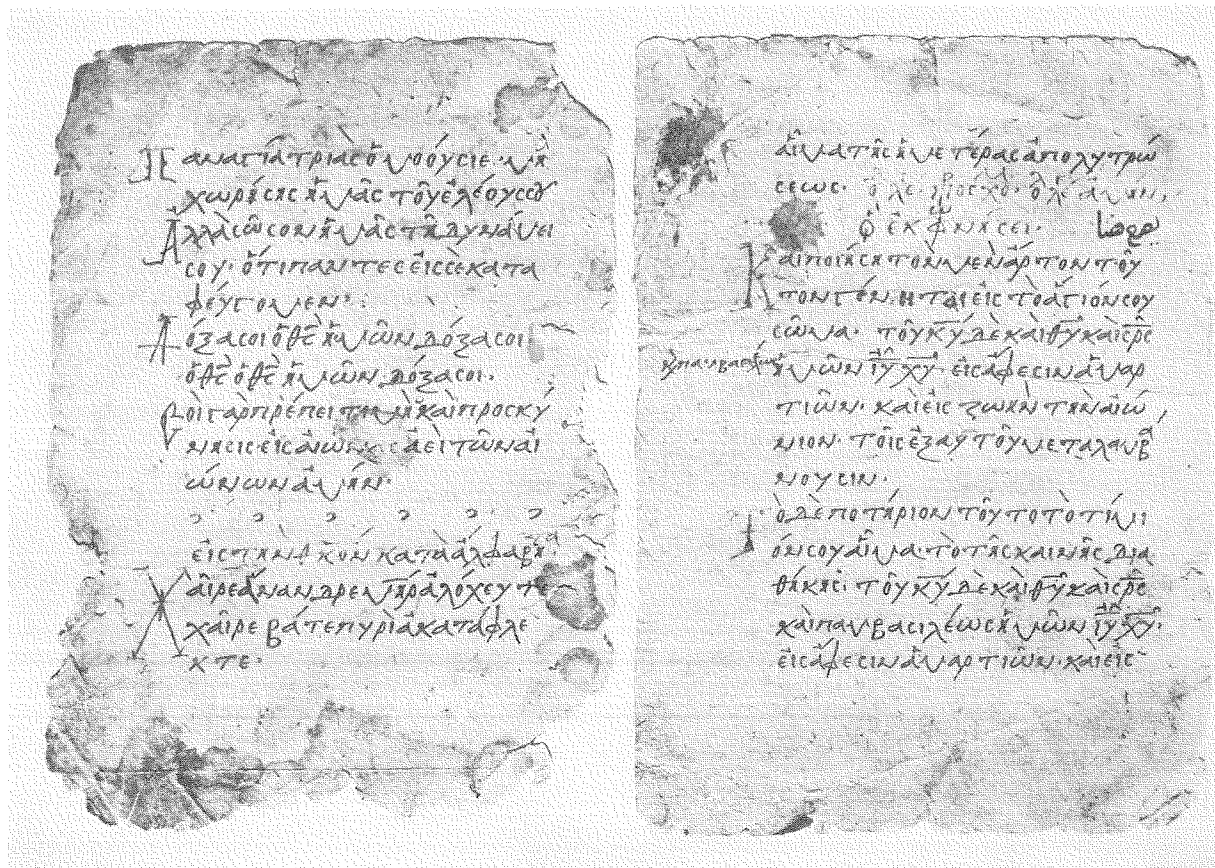 Παναγία τριὰς ὁμοούσιε· μὴ
χωρήσης ἡμᾶς τοῦ ἐλέους σου
Ἀλλὰ σῶσον ἡμᾶς τῆ δυνάμει
σου· ὅτι πάντες εἰς σὲ κατα
φεύγομεν·
Δόξα σοι ὁ θ̅ς̅ ἡμῶν δόξα σοι
ὁ θ̅ς̅ ὁ θ̅ς̅ ἡμῶν δόξα σοι·
Σοὶ γὰρ πρέπει τιμὴ καὶ προσκύ
νησις εἰς αἰῶνας ἀεὶ τῶν αἰ
ώνων ἀμήν·
εἰς τὴν κατὰ ἀλφαβη
Χαῖρε ἄνανδρε μ̅η̅ρ̅ ἀλόχευτε
χαῖρε βάτε πυρὶ ἀκατάφλε
κτε·
αἷμα τῆς ἡμετέρας ἀπολυτρώ
σεως·
ἐκφωνήσει·
Καὶ ποιήση τὸν μὲν ἄρτον τοῦ
τον γέν.ηται εἰς τὸ ἅγιόν σου
σῶμα· τοῦ κ̅υ̅ δὲ καὶ θ̅υ̅ καὶ σ̅ρ̅ς̅
ἡμῶν ι̅υ̅ χ̅υ̅· εἰς ἄφεσιν ἁμαρ
τιῶν· καὶ εἰς ζωὴν τὴν αἰώ
νιον· τοῖς ἐξ αὐτοῦ μεταλαμβ
νουσιν·
Τὸ δὲ ποτήριον τοῦτο τὸ τίμι
όν σου αἷμα· τὸ τῆς καινῆς δια
θήκης· τοῦ κ̅υ̅ δὲ καὶ θ̅υ̅ καὶ σ̅ρ̅ς̅
καὶ παμβασιλέως ἡμῶν ι̅υ̅ χ̅υ̅·
εἰς ἄφεσιν ἁμαρτιῶν· καὶ εἰς